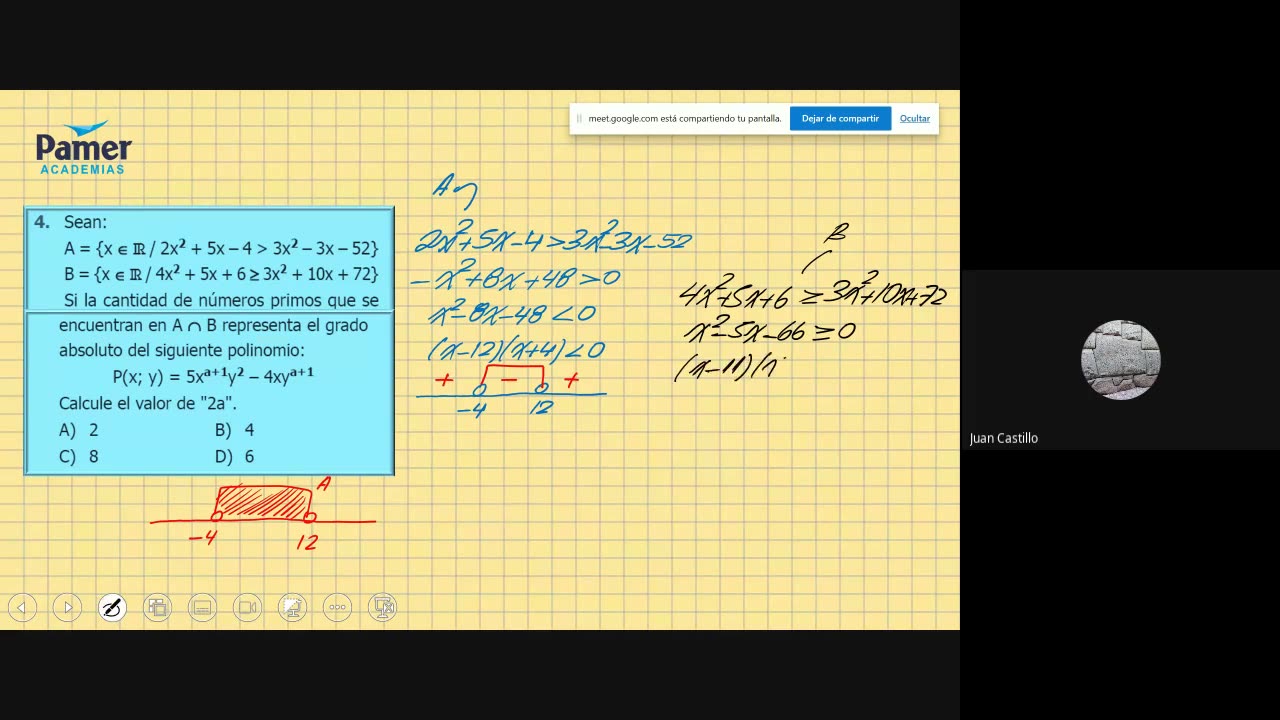 meet.google.com está compartiendo tu pantalla.
Dejar de compartir
Ocultar
Pamer
ACADEMIAS
4. Sean:
A = {x ∈ ℝ / 2x² + 5x – 4 > 3x² – 3x – 52}
B = {x ∈ ℝ / 4x² + 5x + 6 ≥ 3x² + 10x + 72}
Si la cantidad de números primos que se
encuentran en A ∩ B representa el grado
absoluto del siguiente polinomio:
P(x; y) = 5xᵃ⁺¹y² – 4xyᵃ⁺¹
Calcule el valor de "2a".
A) 2 B) 4
C) 8 D) 6
A
-4 12
A
2x²+5x-4>3x²-3x-52
-x²+8x+48>0
x²-8x-48<0
(x-12)(x+4)<0
+ - +
-4 12
B
4x²+5x+6 ≥ 3x²+10x+72
x²-5x-66≥0
(x-11)(
Juan Castillo